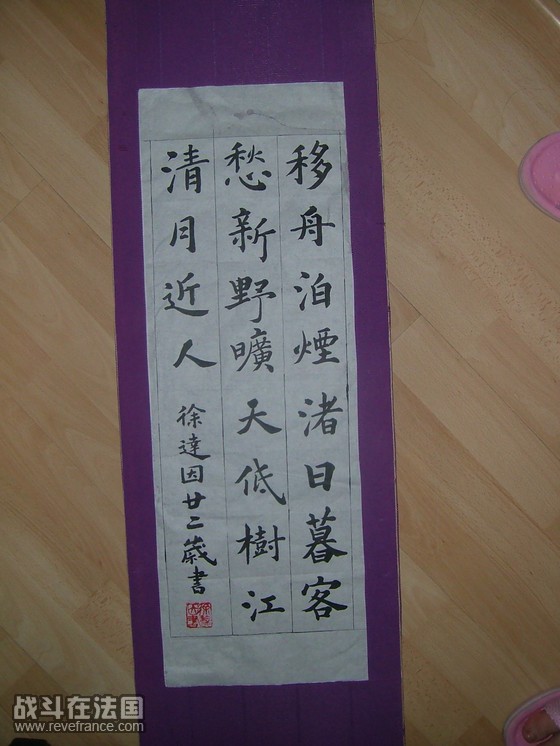 移舟泊煙渚日暮客
愁新野曠天低樹江
清月近人
徐達因廿二歲書
战斗在法国
www.revefrance.com